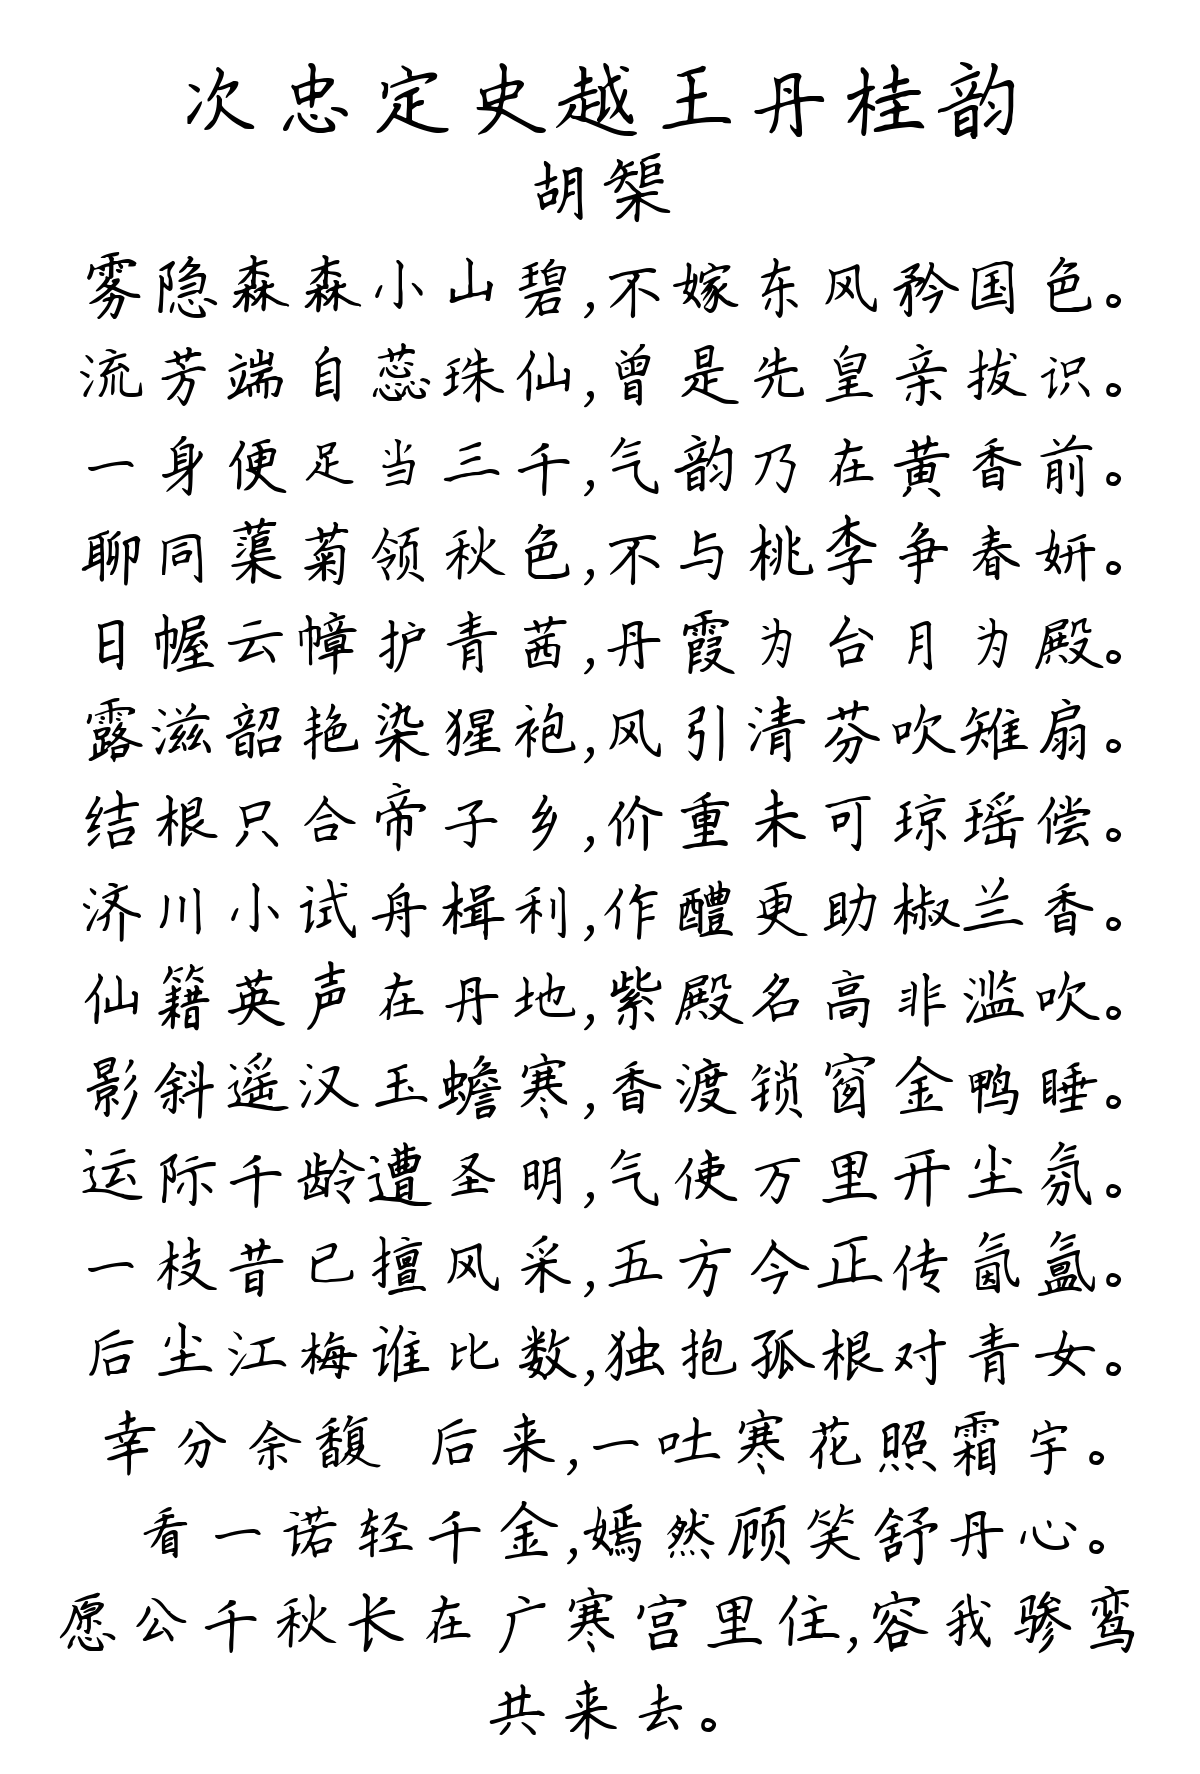 次忠定史越王丹桂韵
胡榘
雾隐森森小山碧,不嫁东风矜国色。
流芳端自蕊珠仙,曾是先皇亲拔识。
一身便足当三千,气韵乃在黄香前。
聊同蕖菊领秋色,不与桃李争春妍。
日幄云幛护青茜,丹霞为台月为殿。
露滋韶艳染猩袍,风引清芬吹雉扇。
结根只合帝子乡,价重未可琼瑶偿。
济川小试舟楫利,作醴更助椒兰香。
仙籍英声在丹地,紫殿名高非滥吹。
影斜遥汉玉蟾寒,香渡锁窗金鸭睡。
运际千龄遭圣明,气使万里开尘氛。
一枝昔已擅风采,五方今正传氤氲。
后尘江梅谁比数,独抱孤根对青女。
幸分余馥 后来,一吐寒花照霜宇。
看一诺轻千金,嫣然顾笑舒丹心。
愿公千秋长在广寒宫里住,容我骖鸾
共来去。